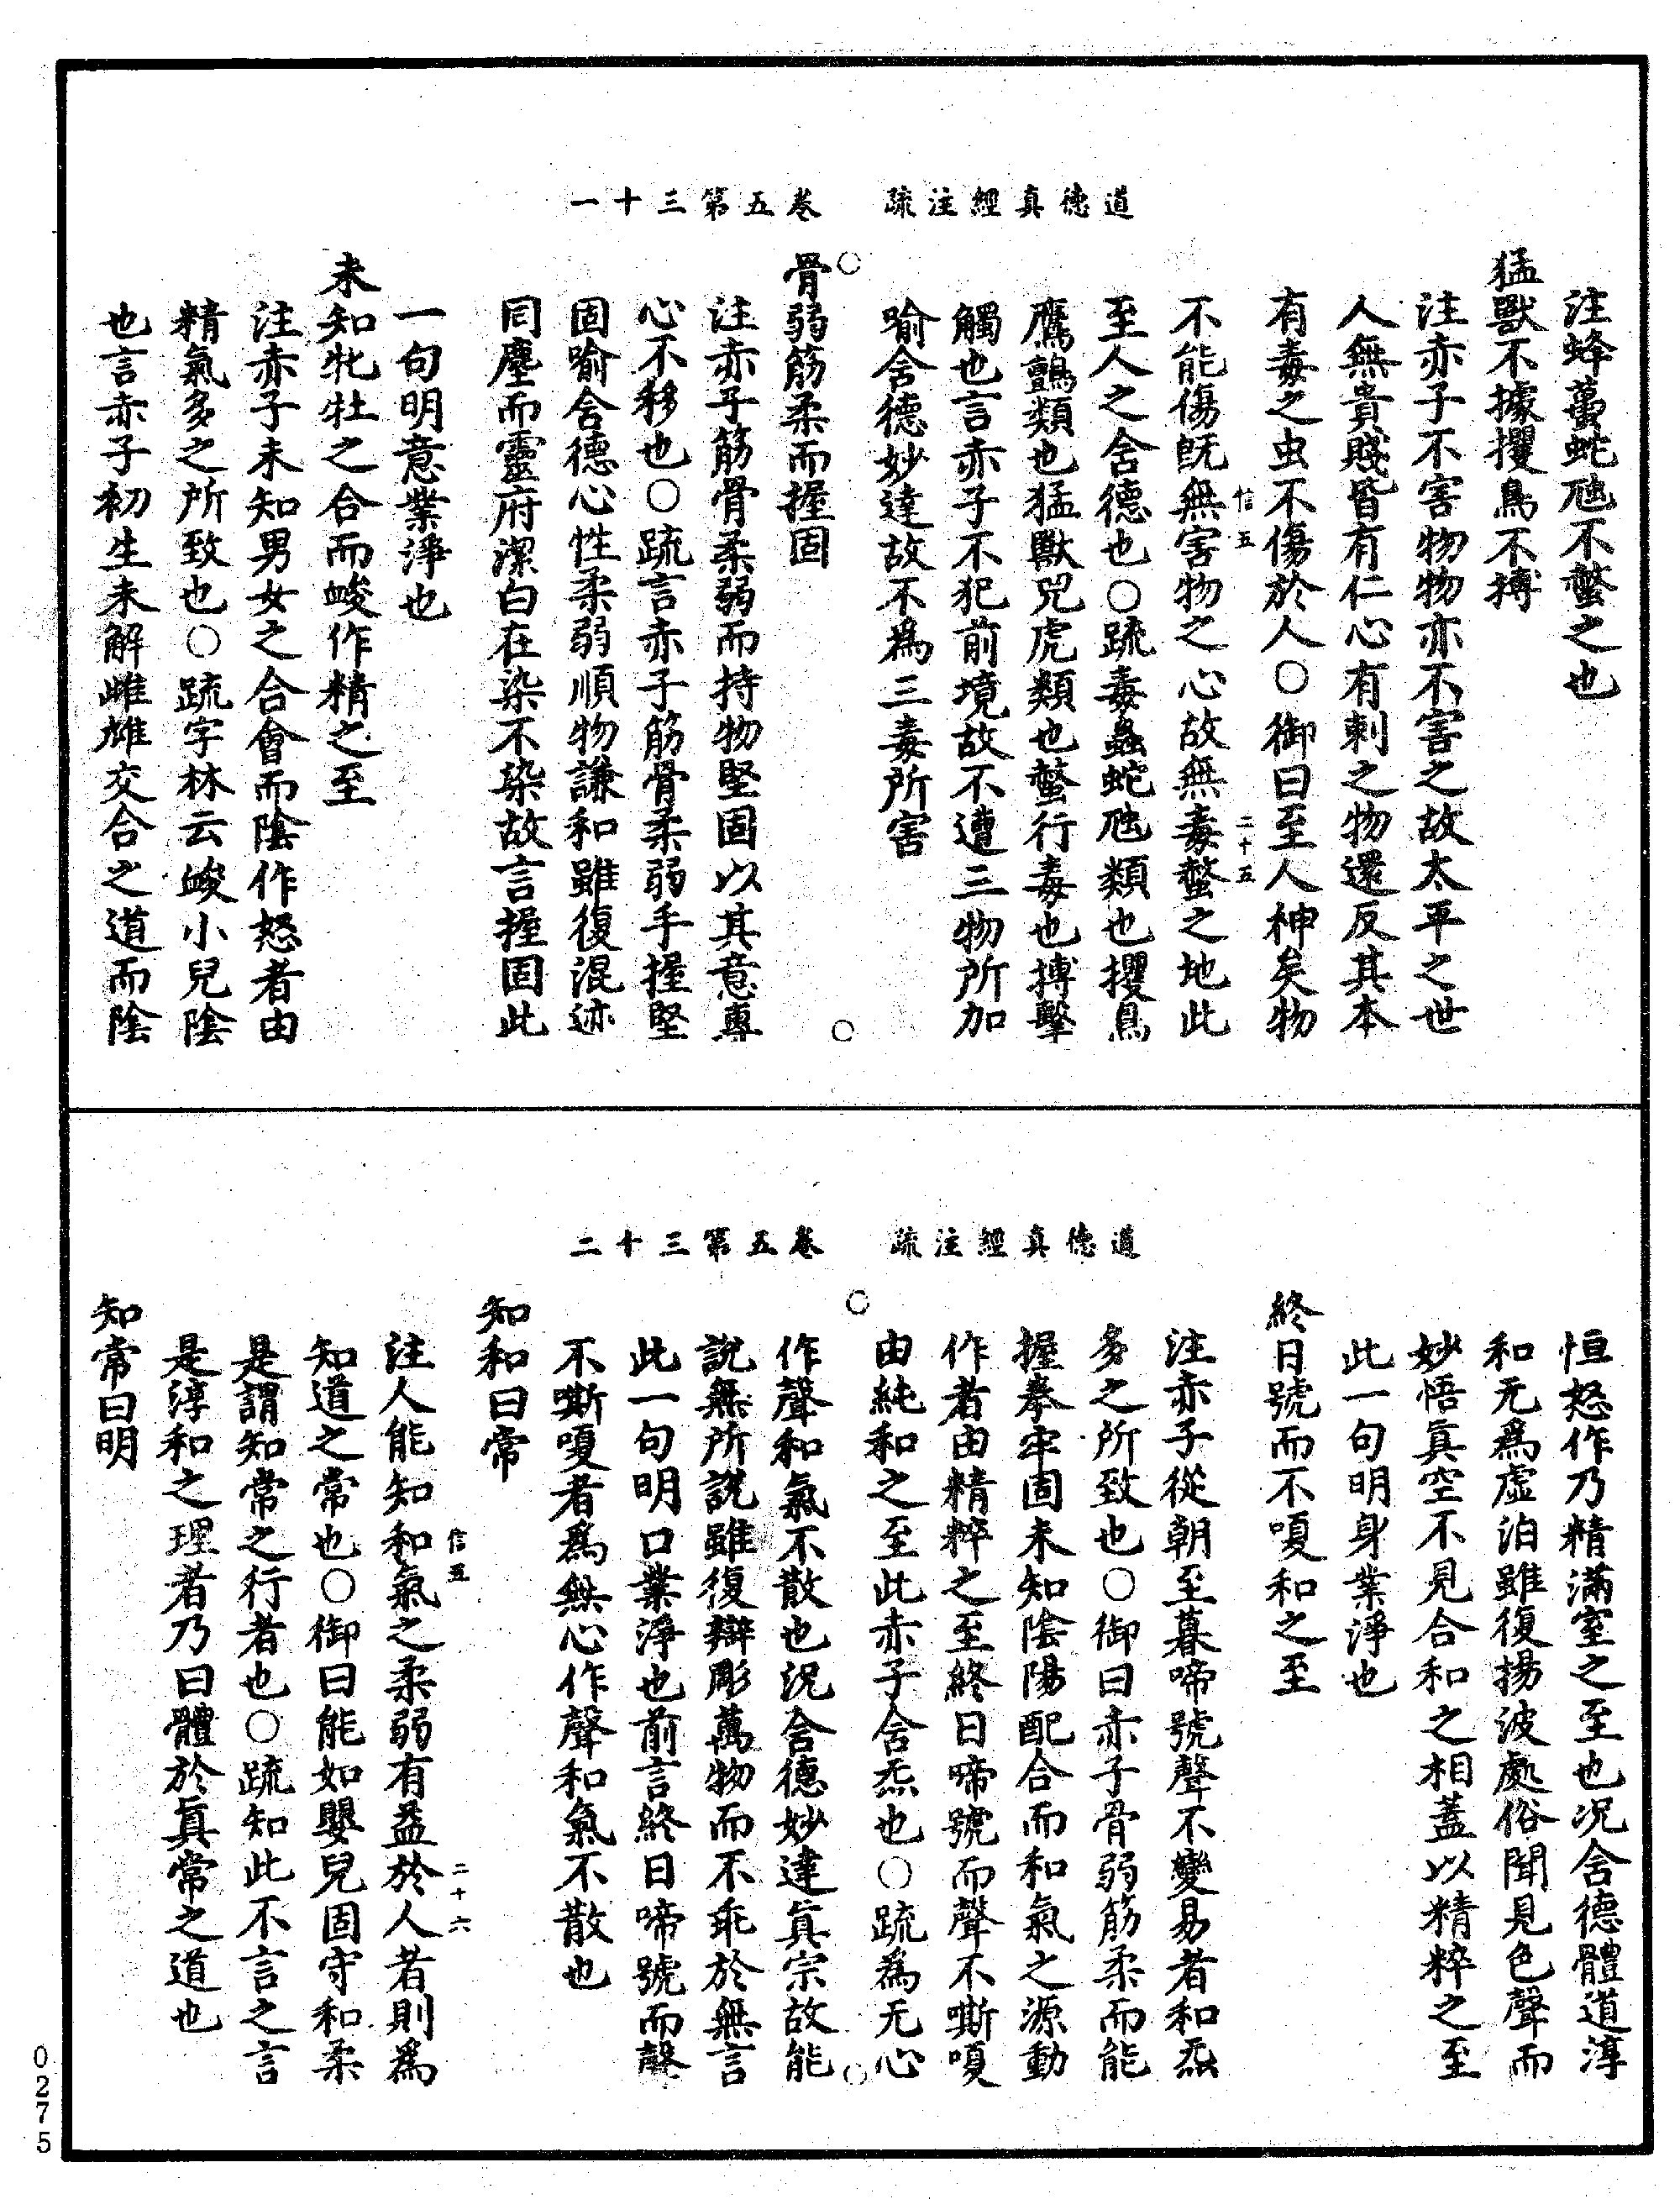 道德真經注疏　卷五第三十一
注蜂蠆蛇虺不螫之也
猛獸不據攫鳥不搏
注赤子不害物物亦不害之故太平之世
人無貴賤皆有仁心有刺之物還反其本
有毒之虫不傷於人○御曰至人神矣物
信五　二十五
不能傷旣無害物之心故無毒螫之地此
至人之含德也○疏毒蟲蛇虺類也攫鳥
鷹鸇類也猛獸兕虎類也螫行毒也搏擊
觸也言赤子不犯前境故不遭三物所加
喻含德妙達故不爲三毒所害
骨弱筋柔而握固
注赤子筋骨柔弱而持物堅固以其意專
心不移也○疏言赤子筋骨柔弱手握堅
固喻含德心性柔弱順物謙和雖復混迹
同塵而靈府潔白在染不染故言握固此
一句明意業淨也
未知牝牡之合而峻作精之至
注赤子未知男女之合會而陰作怒者由
精氣多之所致也○疏字林云峻小兒陰
也言赤子初生未解雌雄交合之道而陰
道德真經注疏　卷五第三十二
恒怒作乃精滿室之至也况含德體道淳
和无爲虛泊雖復揚波處俗聞見色聲而
妙悟真空不見合和之相蓋以精粹之至
此一句明身業淨也
終日號而不嗄和之至
注赤子從朝至暮啼號聲不變易者和炁
多之所致也○御曰赤子骨弱筋柔而能
握拳牢固未知陰陽配合而和氣之源動
作者由精粹之至終日啼號而聲不嘶嗄
由純和之至此赤子含炁也○疏爲无心
作聲和氣不散也况含德妙達真宗故能
說無所說雖復辯彫萬物而不乖於無言
此一句明口業淨也前言終日啼號而聲
不嘶嗄者爲無心作聲和氣不散也
知和曰常
信五　二十六
注人能知和氣之柔弱有益於人者則爲
知道之常也○御曰能如嬰兒固守和柔
是謂知常之行者也○疏知此不言之言
是淳和之理者乃曰體於真常之道也
知常曰明
0275